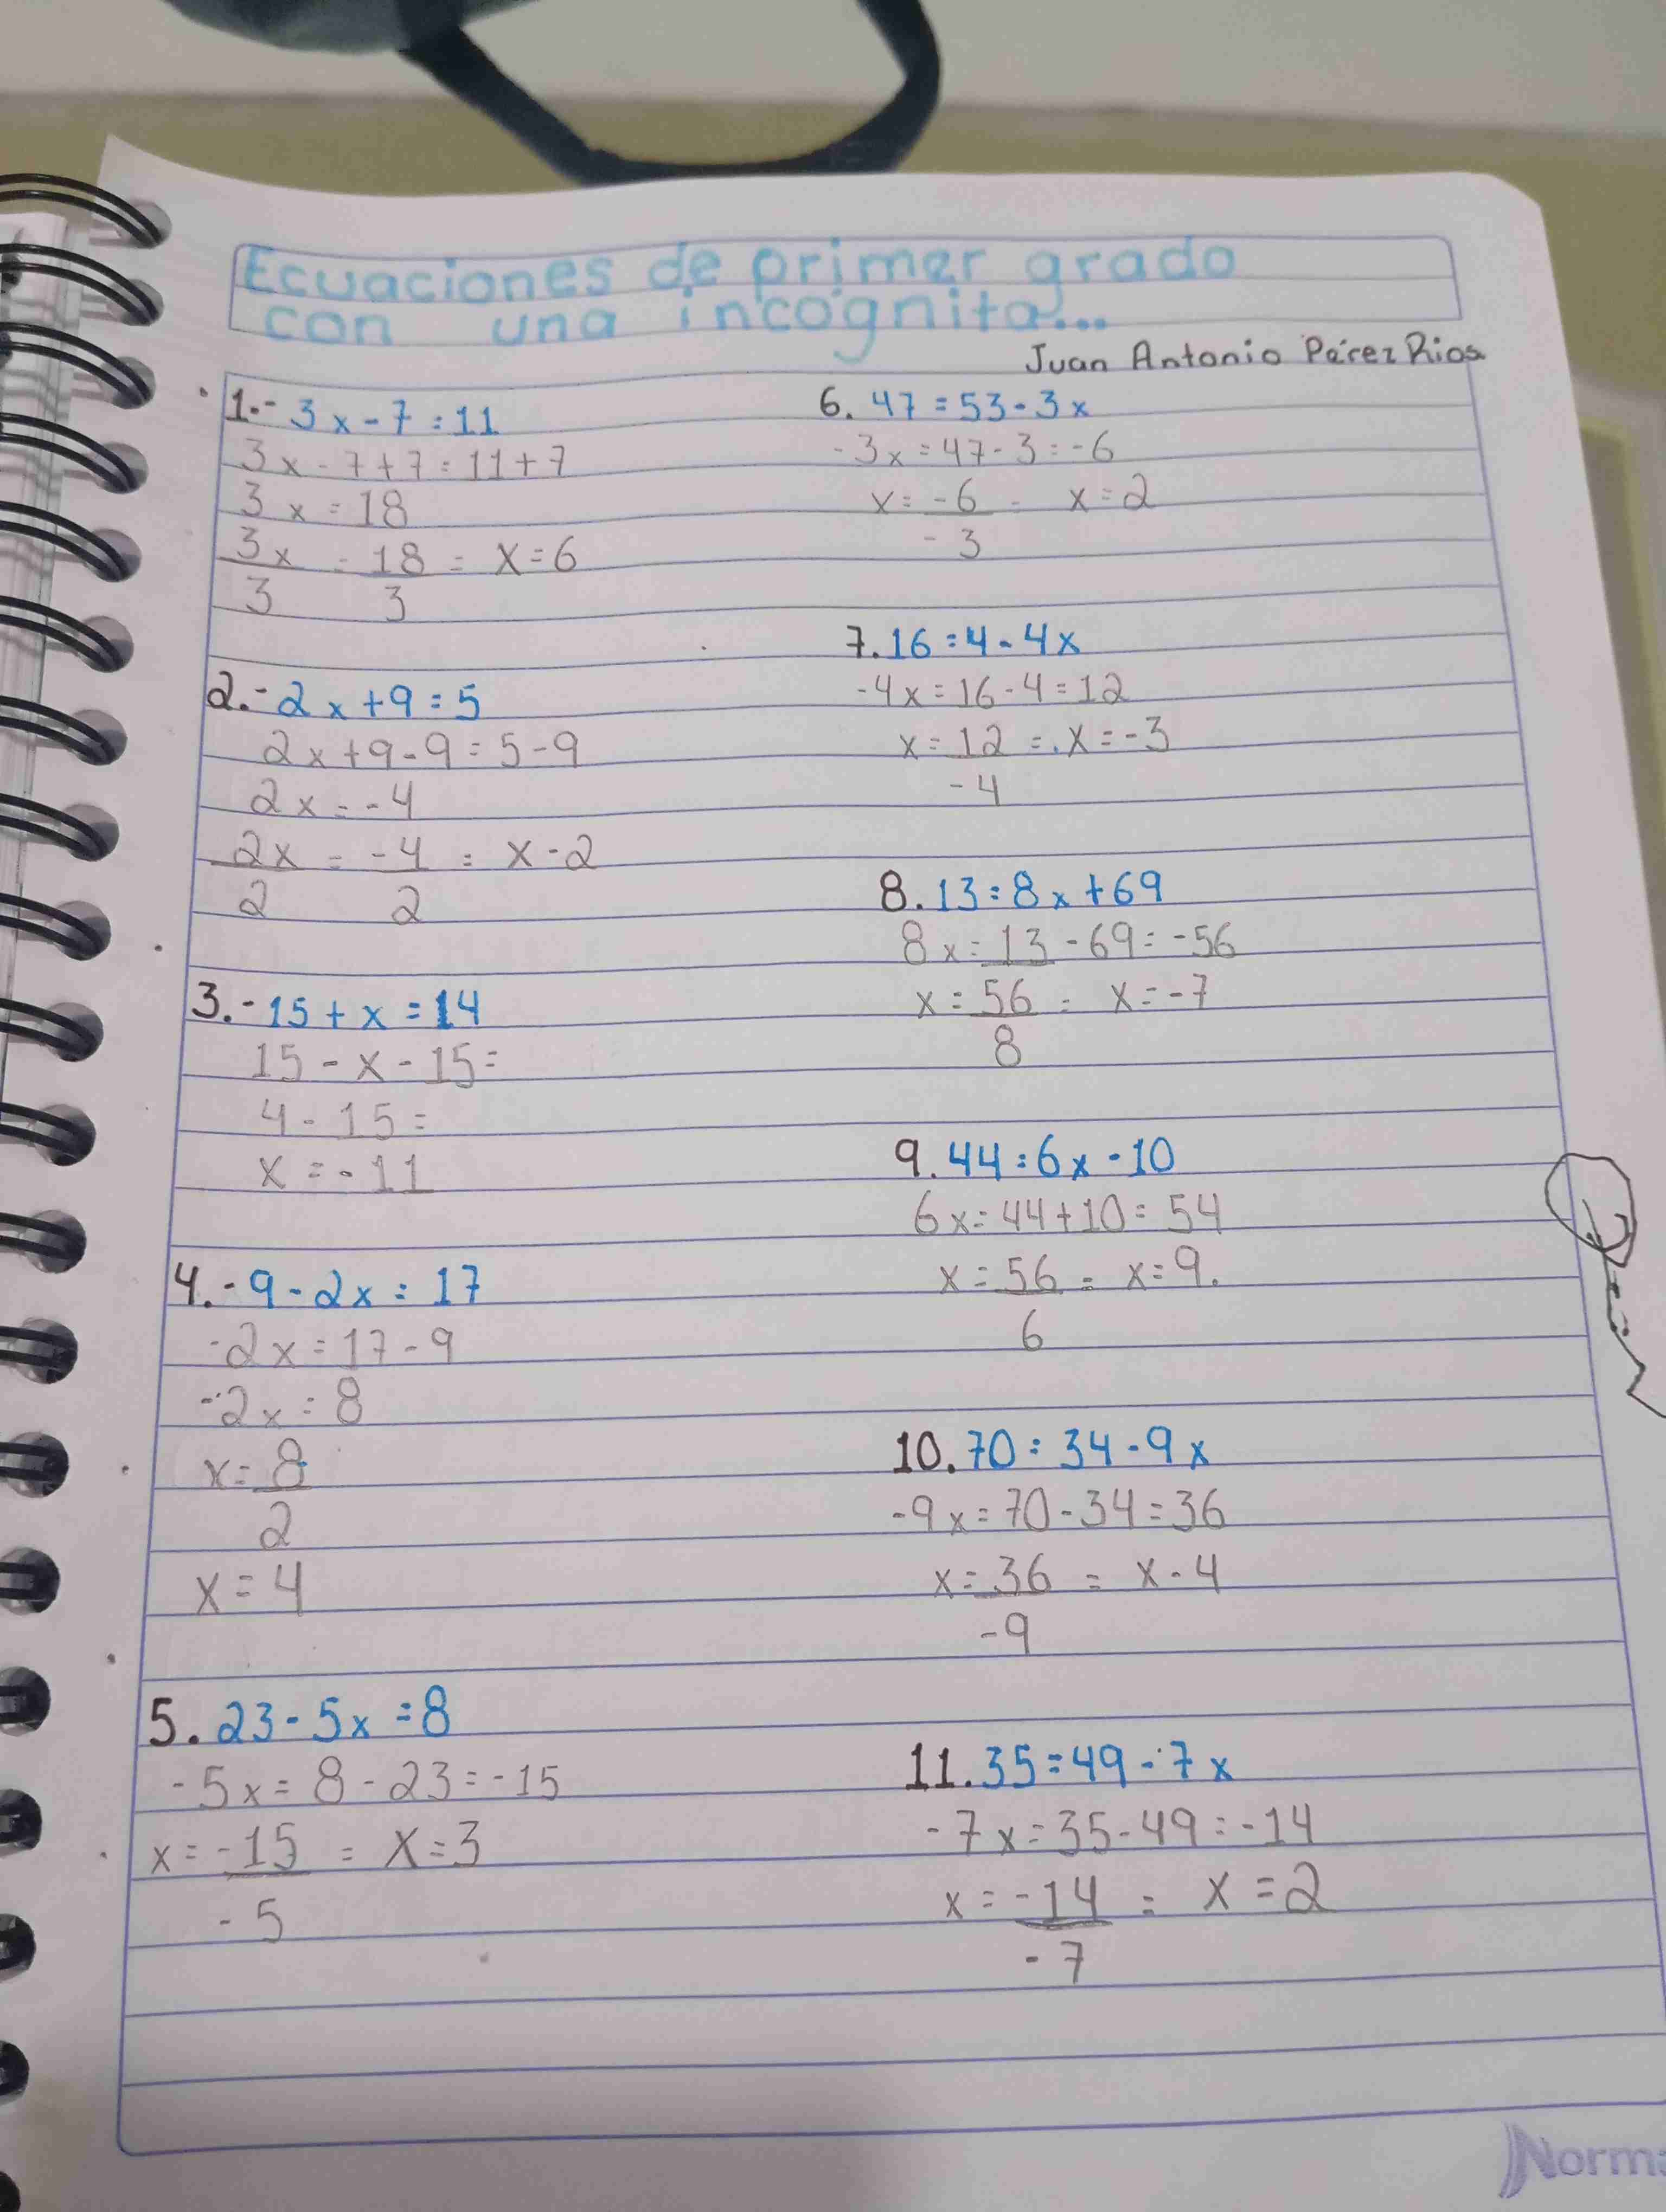 Ecuaciones de primer grado
con una incógnita...
Juan Antonio Pérez Rios
1.- 3x-7=11
3x-7+7=11+7
3x=18
3x = 18 = x=6
3 3
2.- 2x+9=5
2x+9-9=5-9
2x=-4
2x = -4 = x-2
2 2
3.- 15+x=14
15-x-15=
4-15=
x=-11
4.- 9-2x=17
-2x=17-9
-2x=8
x=8
2
x=4
5. 23-5x=8
-5x=8-23=-15
x=-15 = x=3
-5
6. 47=53-3x
-3x=47-3=-6
x=-6 = x=2
-3
7. 16=4-4x
-4x=16-4=12
x=12 =. x=-3
-4
8. 13=8x+69
8x=13-69=-56
x=56 = x=-7
8
9. 44=6x-10
6x=44+10=54
x=56 = x=9.
6
10. 70=34-9x
-9x=70-34=36
x=36 = x-4
-9
11. 35=49-7x
-7x=35-49=-14
x=-14 = x=2
-7